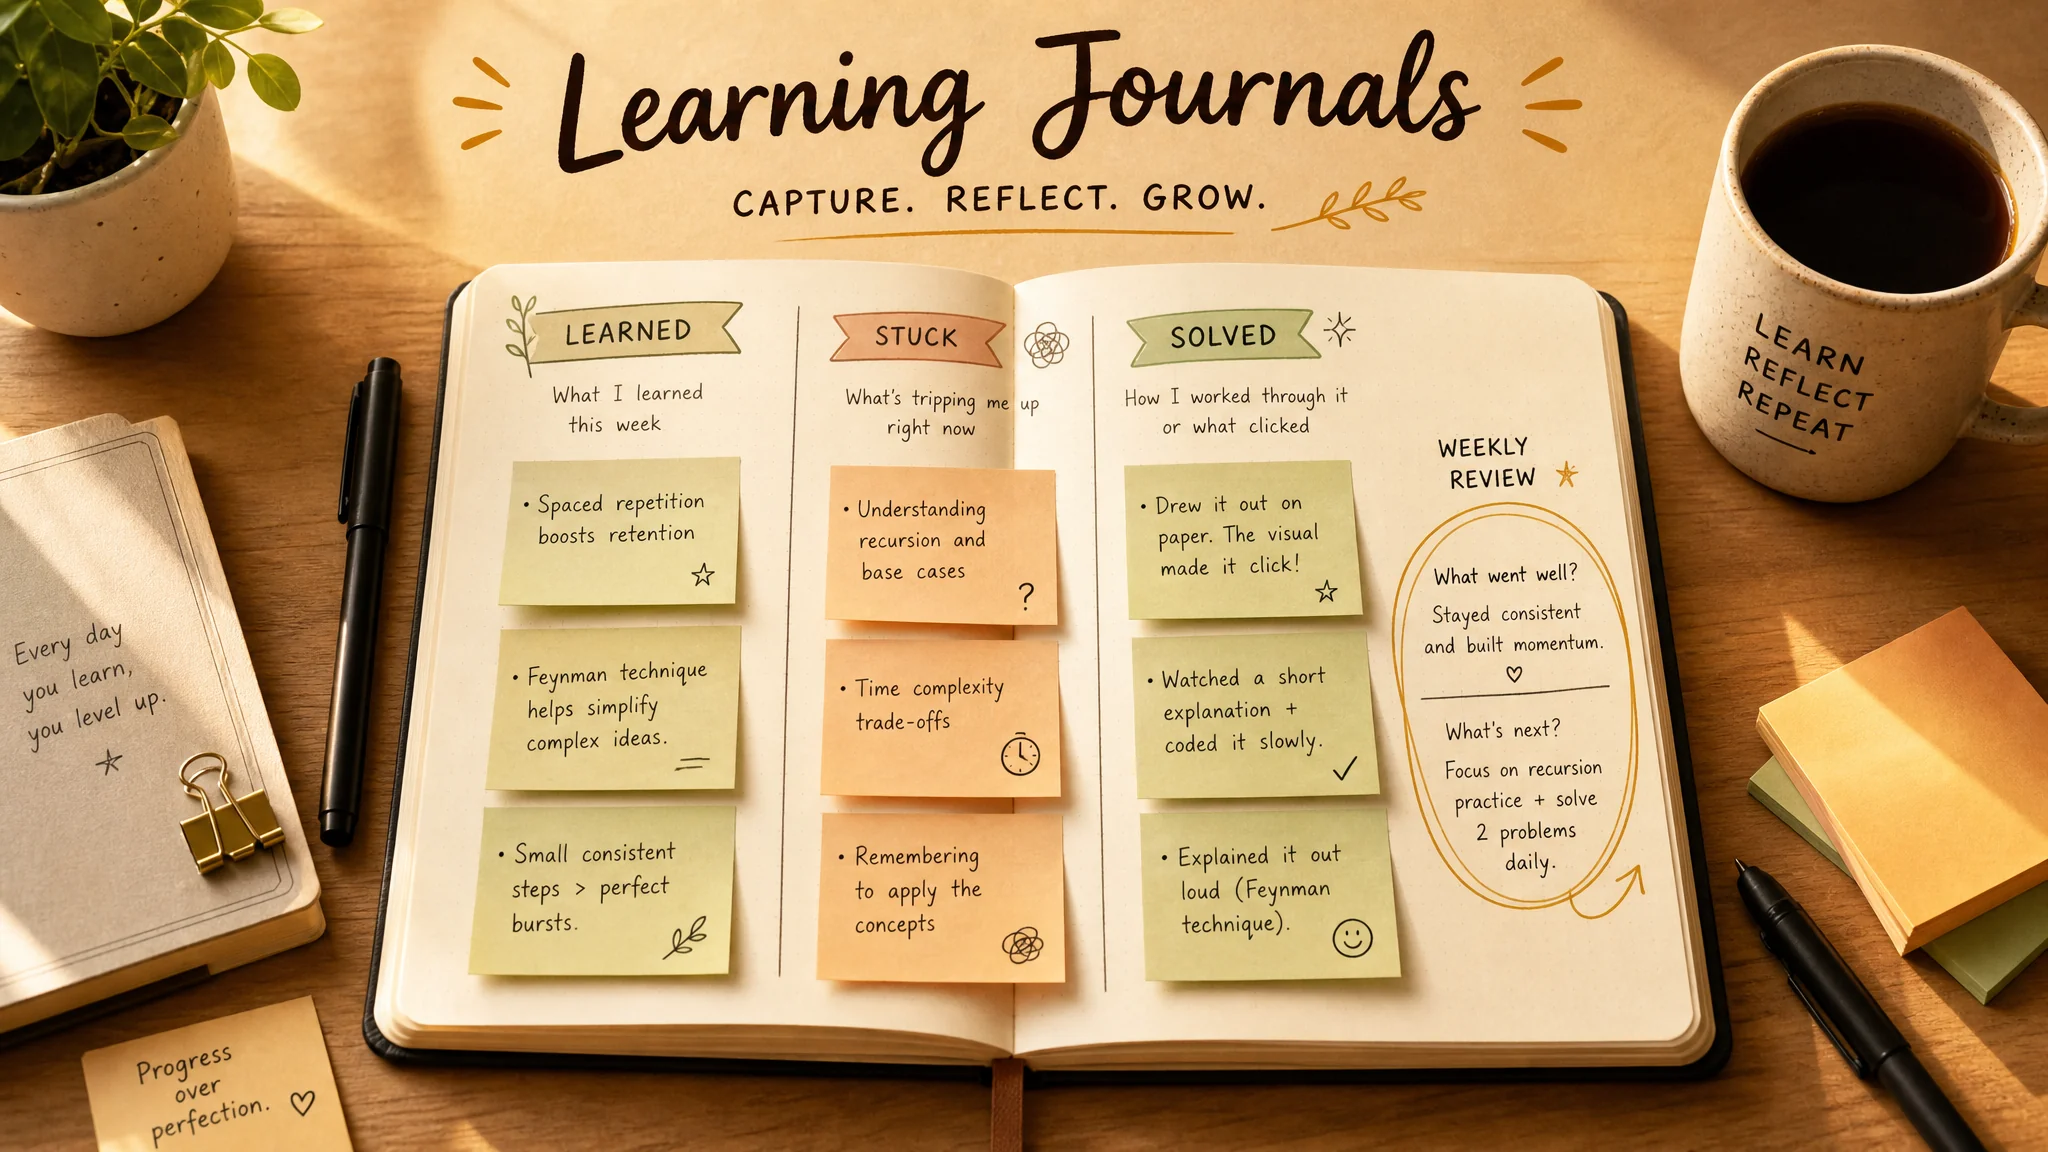 Learning Journals
CAPTURE. REFLECT. GROW.
LEARNED
What I learned
this week
• Spaced repetition
boosts retention
• Feynman technique
helps simplify
complex ideas.
• Small consistent
steps > perfect
bursts.
STUCK
What's tripping me up
right now
• Understanding
recursion and
base cases
?
• Time complexity
trade-offs
• Remembering
to apply the
concepts
SOLVED
How I worked through it
or what clicked
• Drew it out on
paper. The visual
made it click!
• Watched a short
explanation +
coded it slowly.
• Explained it out
loud (Feynman
technique).
WEEKLY
REVIEW
What went well?
Stayed consistent
and built momentum.
What's next?
Focus on recursion
practice + solve
2 problems
daily.
LEARN
REFLECT
REPEAT
Every day
you learn,
you level up.
Progress
over
perfection.